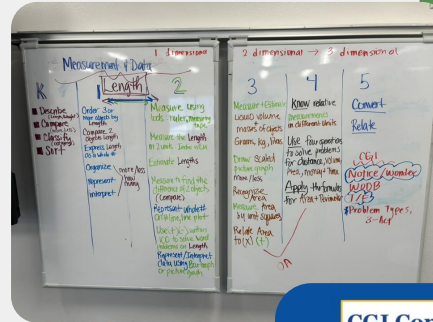 1 dimensional
2 dimensional → 3 dimensional
Measurement & Data
Length
K
Describe
Compare
Classify
Sort
1
Order 3 or
more objects by
Length
Compare 2
objects Length
Express Length
as whole #
Organize
Represent
Interpret
more/less
how
many
2
Measure using
tools - rulers, measuring
tape
Measure the Length
in 2 units
Estimate Lengths
Measure to find the
difference of 2 objects
(compare)
Represent whole #
on line plot
Use (+)(-) within
100 to solve word
on Length
Represent/Interpret
data using Bar graph
or picture
3
Measure + Estimate
Liquid volume
+
masses of objects
Grams, kg, liters
Draw Scaled
picture graph
more/less
Recognize
Area
Measure Area
by unit squares
Relate Area
to (x) (+)
4
Know relative
measurements
in different units
Use four operations
to solve problems
for distance, volume,
money + time
Apply the formulas
for Area + Perimeter
5
Convert
Relate
CGI
Notice/Wonder
WODB
Problem Types,
3-Act